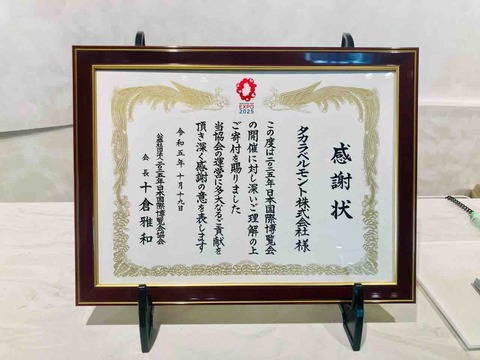 EXPO
2025
感謝状
タカラベルモント株式会社 様
この度は二〇二五年日本国際博覧会
の開催に対し深いご理解の上
ご寄付を賜りました
当協会の運営に多大なるご貢献を
頂き深く感謝の意を表します
令和五年 十月十九日
公益社団法人二〇二五年日本国際博覧会協会
会長 十倉雅和